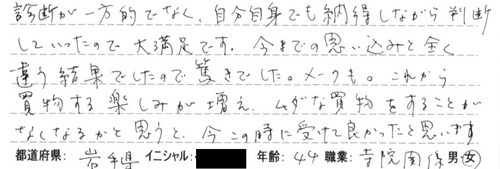 診断が一方的でなく、自分自身でも納得しながら判断
していったので大満足です。今までの思い込みと全く
違う結果でしたので驚きでした。メークも。これから
買物する楽しみが増え、ムダな買物をすることが
なくなるかと思うと、今この時に受けて良かったと思います
都道府県: 岩手県 イニシャル: 年齢: 44 職業: 寺院関係 男・女